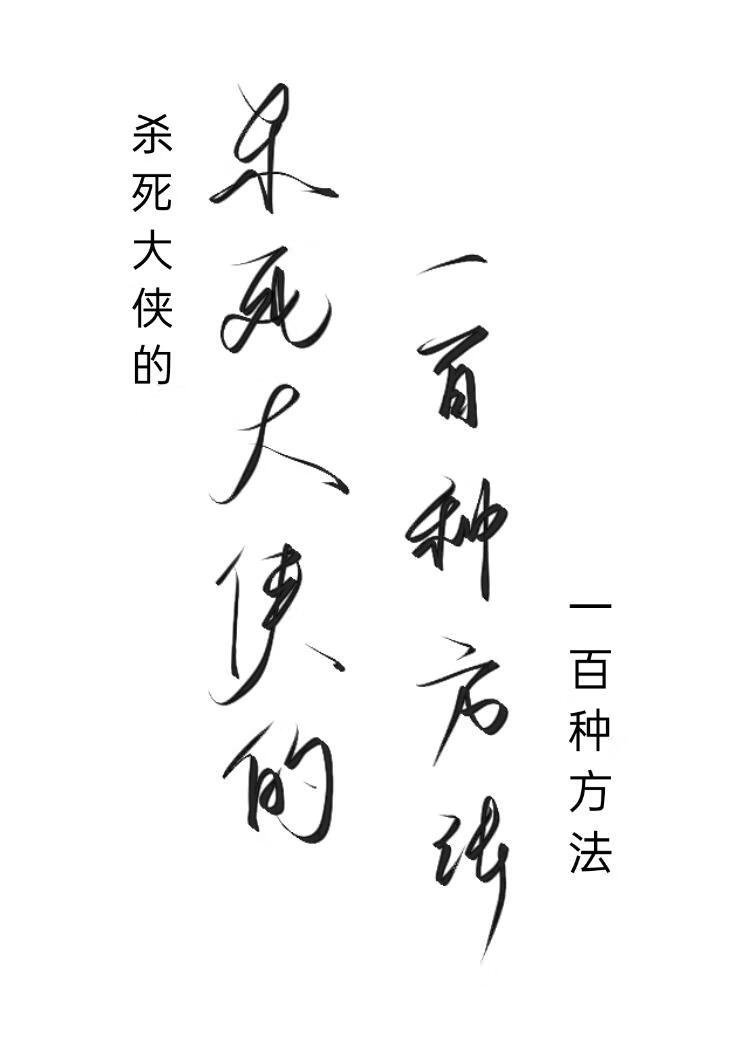 杀死大侠的
杀死大侠的
一百种方法
一百种方法